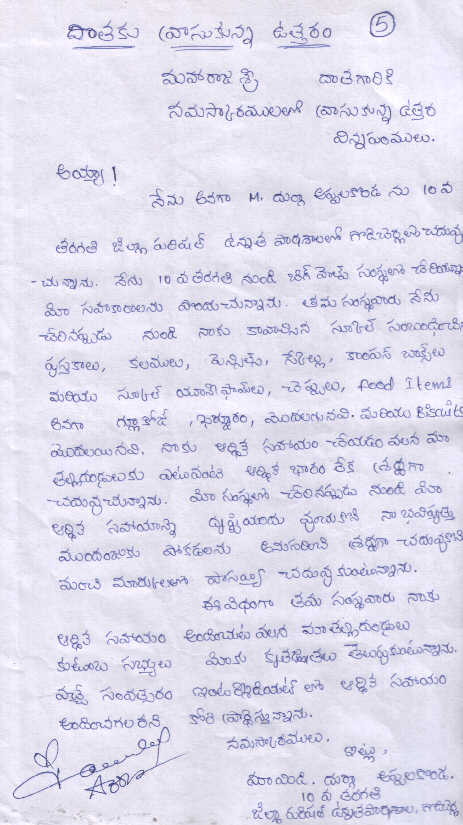 దాతకు వ్రాసుకున్న ఉత్తరం ⑤
మహారాజశ్రీ దాతగారికి
నమస్కారములలో వ్రాసుకున్న ఉత్తర
విన్నపములు.
అయ్యా!
నేను అనగా M. దుర్గా అప్పలకొండ ను 10 వ
తరగతి జిల్లా పరిషత్ ఉన్నత పాఠశాలలో చదువు
-చున్నాను. నేను 10 వ తరగతి నుండి సంస్థలో చేరియున్నా
మీ సహకారాలను పొందుచున్నాను. తమ సంస్థవారు నేను
చేరినప్పుడు నుండి నాకు కావాల్సిన స్కూల్ సంబంధించిన
పుస్తకాలు, కలములు, పెన్సిల్స్, స్కేల్లు, కాంపస్ బాక్స్‌లు
మరియు స్కూల్ యూనిఫామ్‌లు, చెప్పులు, food Items
అనగా గ్లూకోజ్, ఖర్జూరం, మొదలగునవి. మరియు బిస్కెట్స్
మొదలయినవి. నాకు ఆర్థిక సహాయం చేయడం వలన మా
తల్లిదండ్రులకు ఎటువంటి ఆర్థిక భారం లేక శ్రద్ధగా
చదువుచున్నాను. మీ సంస్థలో చేరినప్పుడు నుండి మీ
ఆర్థిక సహాయాన్ని దృష్టియందు వుంచుకొని నా భవిష్యత్తు
ముందంజకు పోకడలను అనుసరించి శ్రద్ధగా చదువుకొని
మంచి మార్కులలో పాసయ్యి చదువుకుంటున్నాను.
ఈ విధంగా తమ సంస్థవారు నాకు
ఆర్థిక సహాయం అందించుట వలన మా తల్లిదండ్రులు
కుటుంబ సభ్యులు మీకు కృతజ్ఞతలు తెలుపుకుంటున్నాను.
వచ్చే సంవత్సరం ఇంటర్మీడియట్ లో ఆర్థిక సహాయం
అందించగలరని కోరి ప్రార్థిస్తున్నాను.
నమస్కారములు.
ఇట్లు,
దుర్గా అప్పలకొండ.
10 వ తరగతి
జిల్లా పరిషత్ ఉన్నత పాఠశాల,